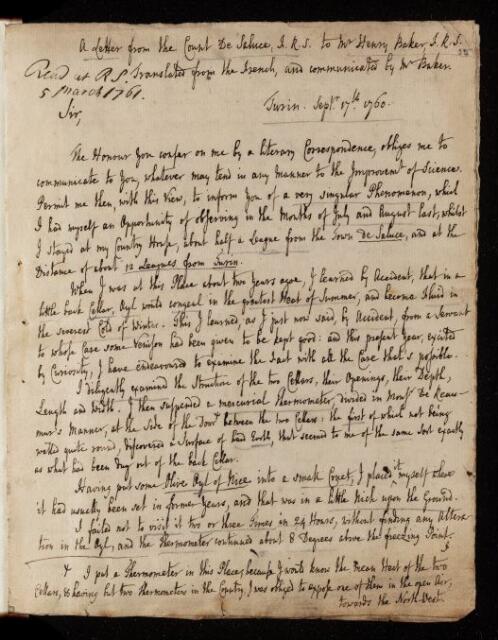 A Letter from the Count De Saluce, F.R.S. to Mr Henry Baker, F.R.S.
Read at R.S. Translated from the French, and communicated by Mr Baker.
5 March 1761.
Turin. Sept. 17th 1760.
Sir,
The Honour You confer on me by a literary Correspondence, obliges me to
communicate to You, whatever may tend in any Manner to the Improvement of Sciences.
Permit me then, with this View, to inform You of a very singular Phenomenon, which
I had myself an Opportunity of observing in the Months of July and August last, whilst
I stayed at my Country House, about half a League from the Town de Saluce, and at the
Distance of about 12 Leagues from Turin.
When I was at this Place about two Years agoe, I learned by Accident, that in a
little back Cellar, Oyl would congeal in the greatest Heat of Summer, and become Fluid in
the severest Cold of Winter. This I learned, as I just now said, by Accident, from a Servant
to whose Care some Venison had been given to be kept good: and this present Year, excited
by Curiosity, I have endeavoured to examine the Fact with all the Care that's possible.
I diligently examined the Structure of the two Cellers, their Openings, their Depth,
Length and Width. I then suspended a mercurial Thermometer, divided in Monsr. De Reau-
mur's Manner, at the Side of the Door between the two Cellars: the first of which not being
walled quite round, discovered a Surface of hard Earth, that seemed to me of the same Sort exactly
as what had been dug out of the back Cellar.
Having put some Olive Oyl of Nice into a small Cruet, I placed it myself where
it had usually been set in former Years, and that was in a little Nich upon the Ground.
I failed not to visit it two or three Times in 24 Hours, without finding any Altera-
tion in the Oyl, and the Thermometer continued about 8 Degrees above the freezing Point.
I put a Thermometer in this Place, because I would know the mean Heat of the two
Cellars, & having but two Thermometers in the Country, I was obliged to expose one of them in the open Air,
towards the North-West.